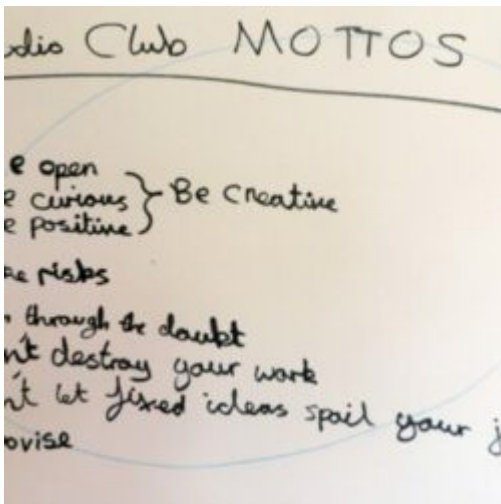 dio Club MOTTOS
e open
e curious
e positive
Be Creative
ke risks
through the doubt
n't destroy your work
n't let fixed ideas spoil your j
ovise